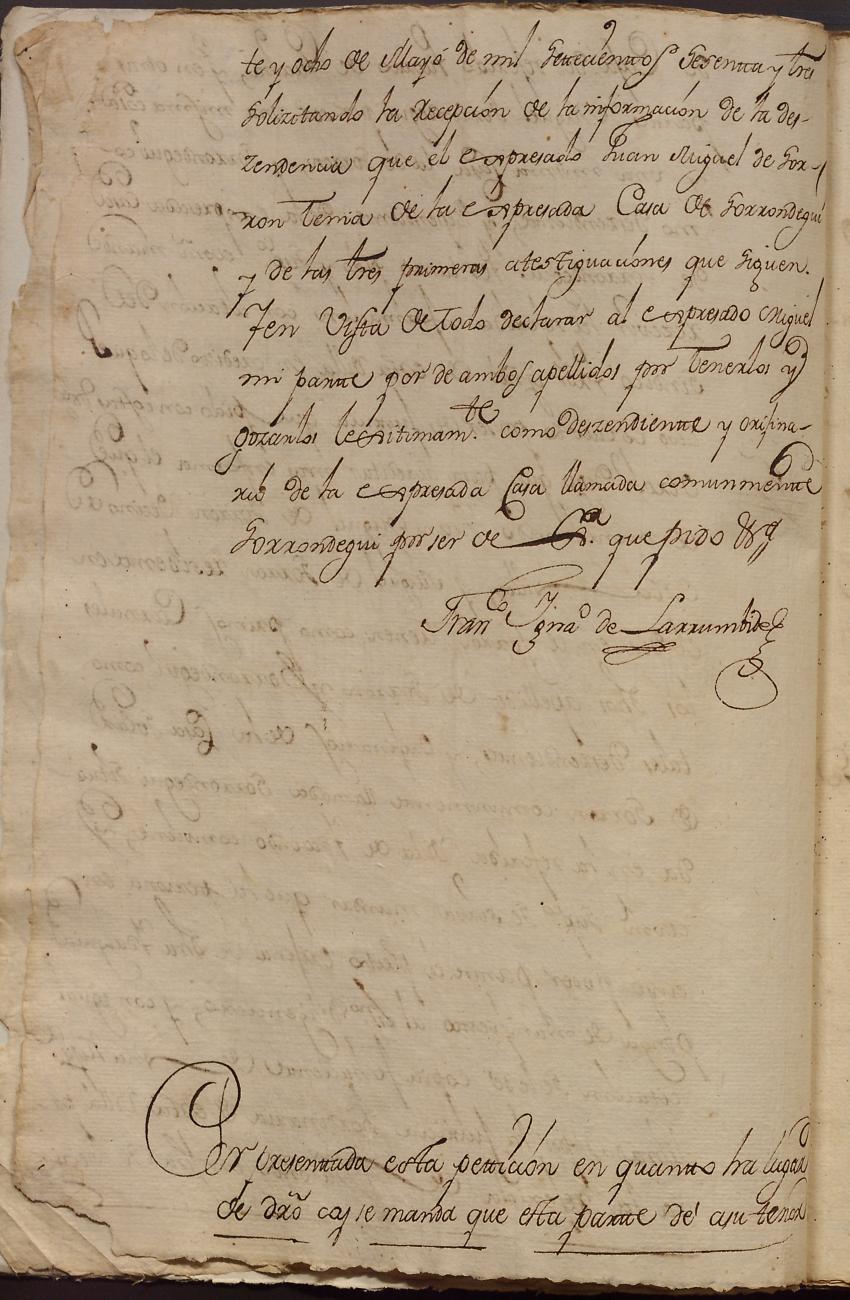 te y ocho de Mayo de mil setecientos sesenta y tres
solizitando la Recepción de la información de la des-
zendencia que el expresado Juan Miguel de Sor-
ron tenia de la expresada Casa de Sorrondegui
y de las tres primeras atestiguaciones que siguen.
Y en vista de todo declarar al expresado Miguel
mi parte por de ambos apellidos por tenerlos y
gozarlos lexitimam.te como deszendiente y orijina-
rio de la expresada Casa llamada comunmente
Sorrondegui por ser de que pido &a
Franco Ignao de Larrumbide
Por presentada esta petición en quanto ha lugar
de dro̅ y se manda que esta parte dé a su tenor